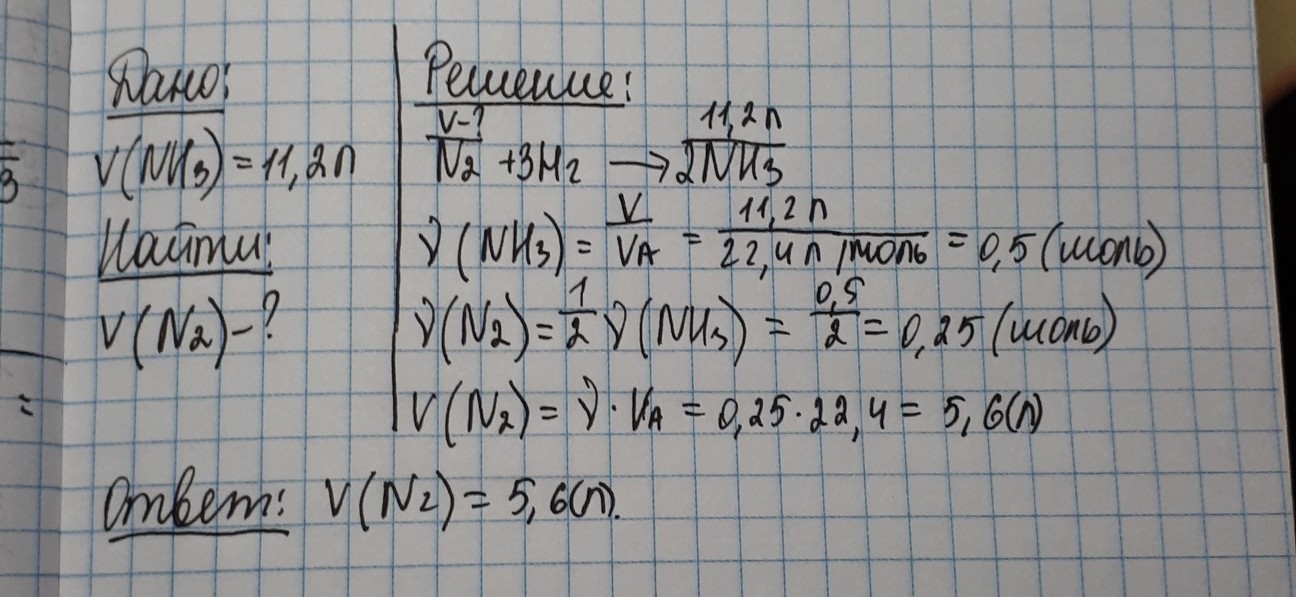 Дано:
V(NH3) = 11,2 л
Найти:
V(N2) - ?
Решение:
V-? 11,2 л
N2 + 3H2 → 2NH3
ν(NH3) = V/VA = 11,2 л/22,4 л/моль = 0,5 (моль)
ν(N2) = 1/2 ν(NH3) = 0,5/2 = 0,25 (моль)
V(N2) = ν · VA = 0,25 · 22,4 = 5,6(л)
Ответ: V(N2) = 5,6(л).